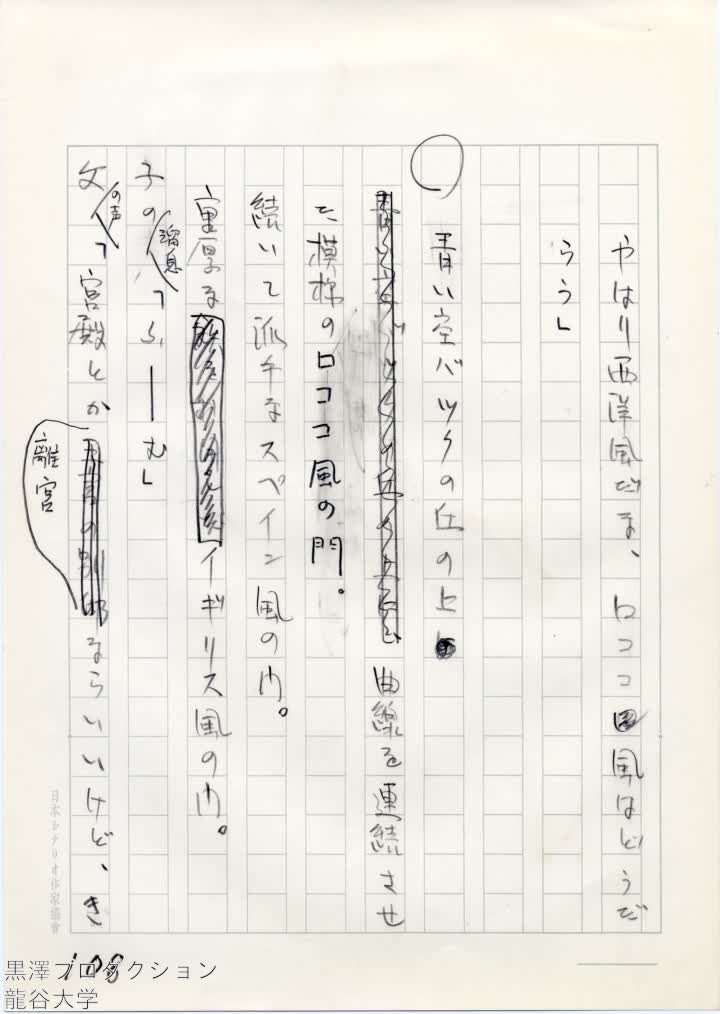 やはり西洋風だな、ロココ風はどうだ
らう」
○
青い空バックの丘の上
曲線を連続させ
た模様のロココ風の門。
続いて派手なスペイン風の門。
重厚なイギリス風の門。
子の溜息「ふ――む」
父の声「宮殿とか離宮ならいいけど、き
日本シナリオ作家協會
108
黒澤プロダクション
龍谷大学